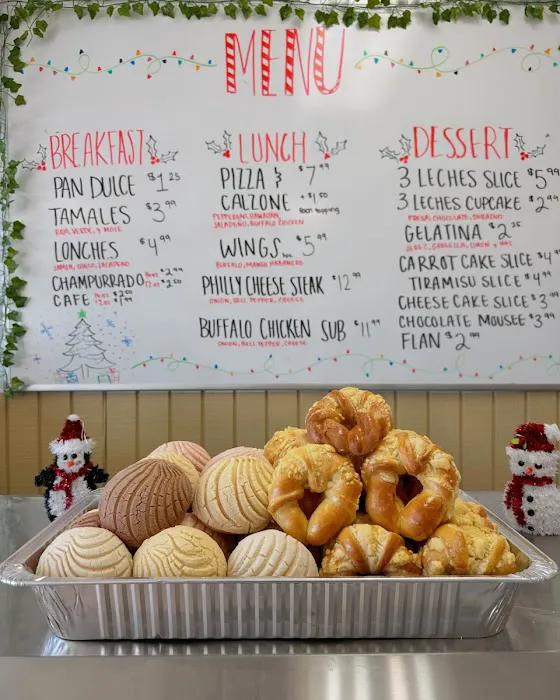 MENU
BREAKFAST
PAN DULCE $1 25
TAMALES $3 99
LONCHES $4 99
JAMON, CHILE, JALAPEÑO
CHAMPURRADO
CAFE
LUNCH
PIZZA & $7 99
CALZONE + $1.50
PEPPERONI, HAWAIIAN,
JALAPEÑO, BUFFALO CHICKEN
WINGS $5 99
BUFFALO, MANGO HABANERO
PHILLY CHEESE STEAK $12 99
ONION, BELL PEPPER, CHEESE
BUFFALO CHICKEN SUB $11 99
ONION, BELL PEPPER, CHEESE
DESSERT
3 LECHES SLICE $5 99
3 LECHES CUPCAKE $2 99
FRESA, CHOCOLATE, DURAZNO
GELATINA $2 25
CARROT CAKE SLICE $4
TIRAMISU SLICE $4
CHEESE CAKE SLICE $3 99
CHOCOLATE MOUSEE $3 99
FLAN $2 99